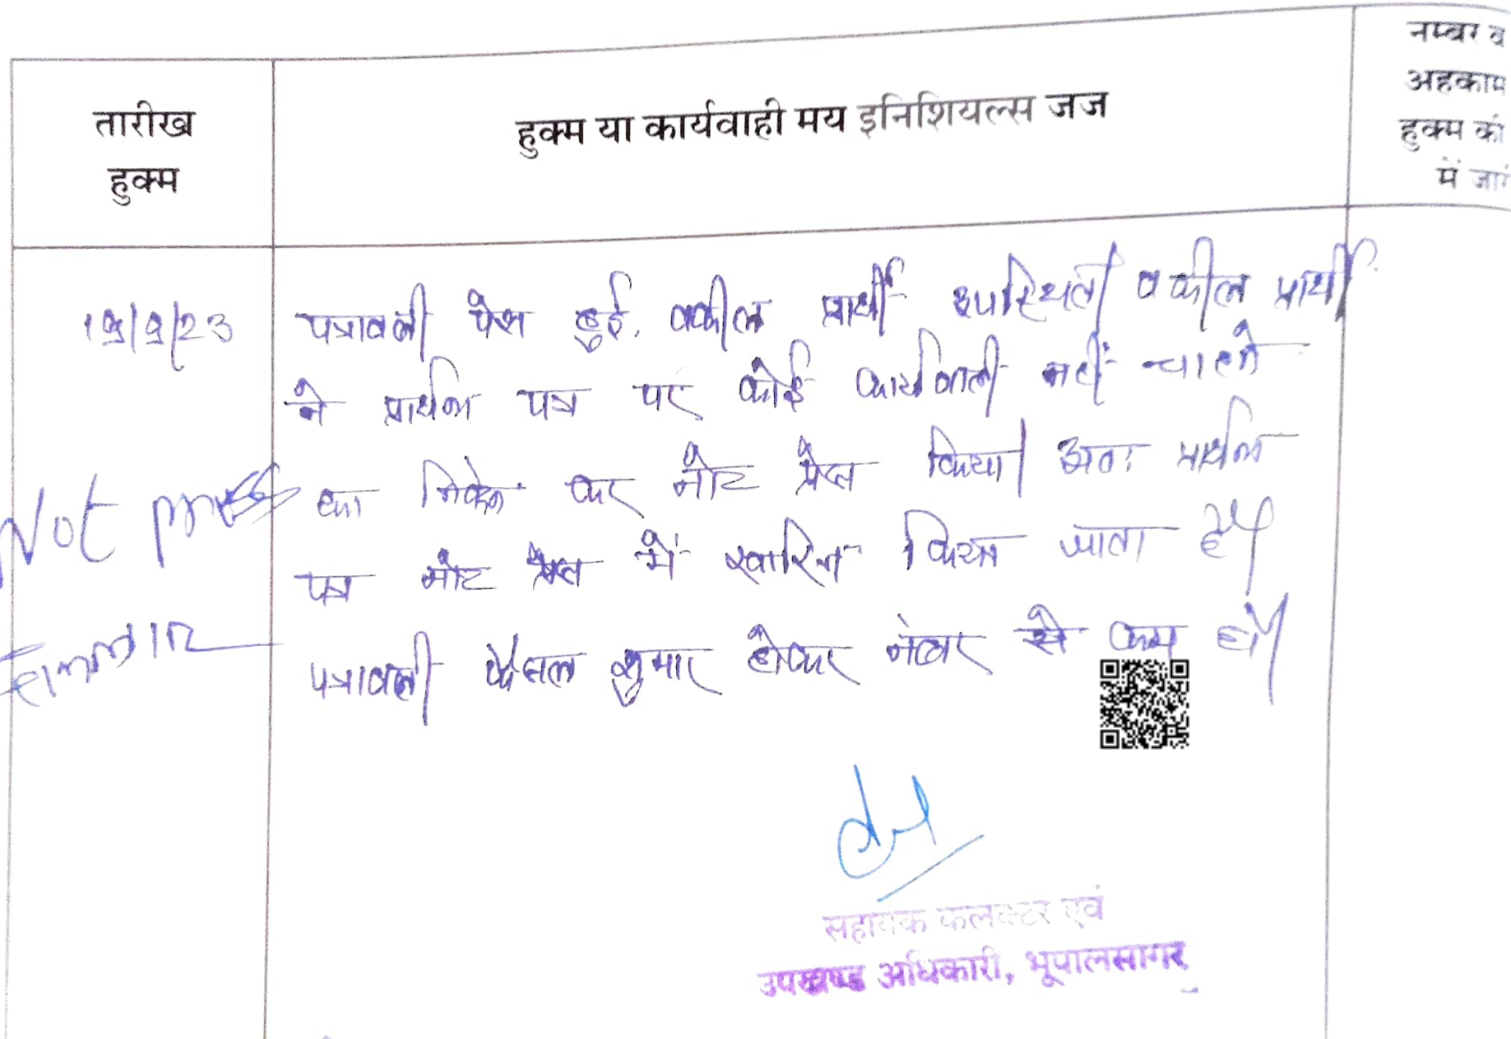 तारीख
हुक्म
हुक्म या कार्यवाही मय इनिशियल्स जज
नम्बर व
अहकाम
हुक्म की
में जारी
पत्रावली पेश हुई. वकील प्रार्थी उपस्थित। वकील प्रार्थी
ने प्रार्थना पत्र पर कोई कार्यवाही नहीं चाहने
का निवेदन कर नोट प्रेस किया। अतः प्रार्थना
पत्र नोट प्रेस में खारिज किया जाता है।
पत्रावली फैसल शुमार होकर नंबर से कम हो।
Not press
सहायक कलक्टर एवं
उपखण्ड अधिकारी, भूपालसागर